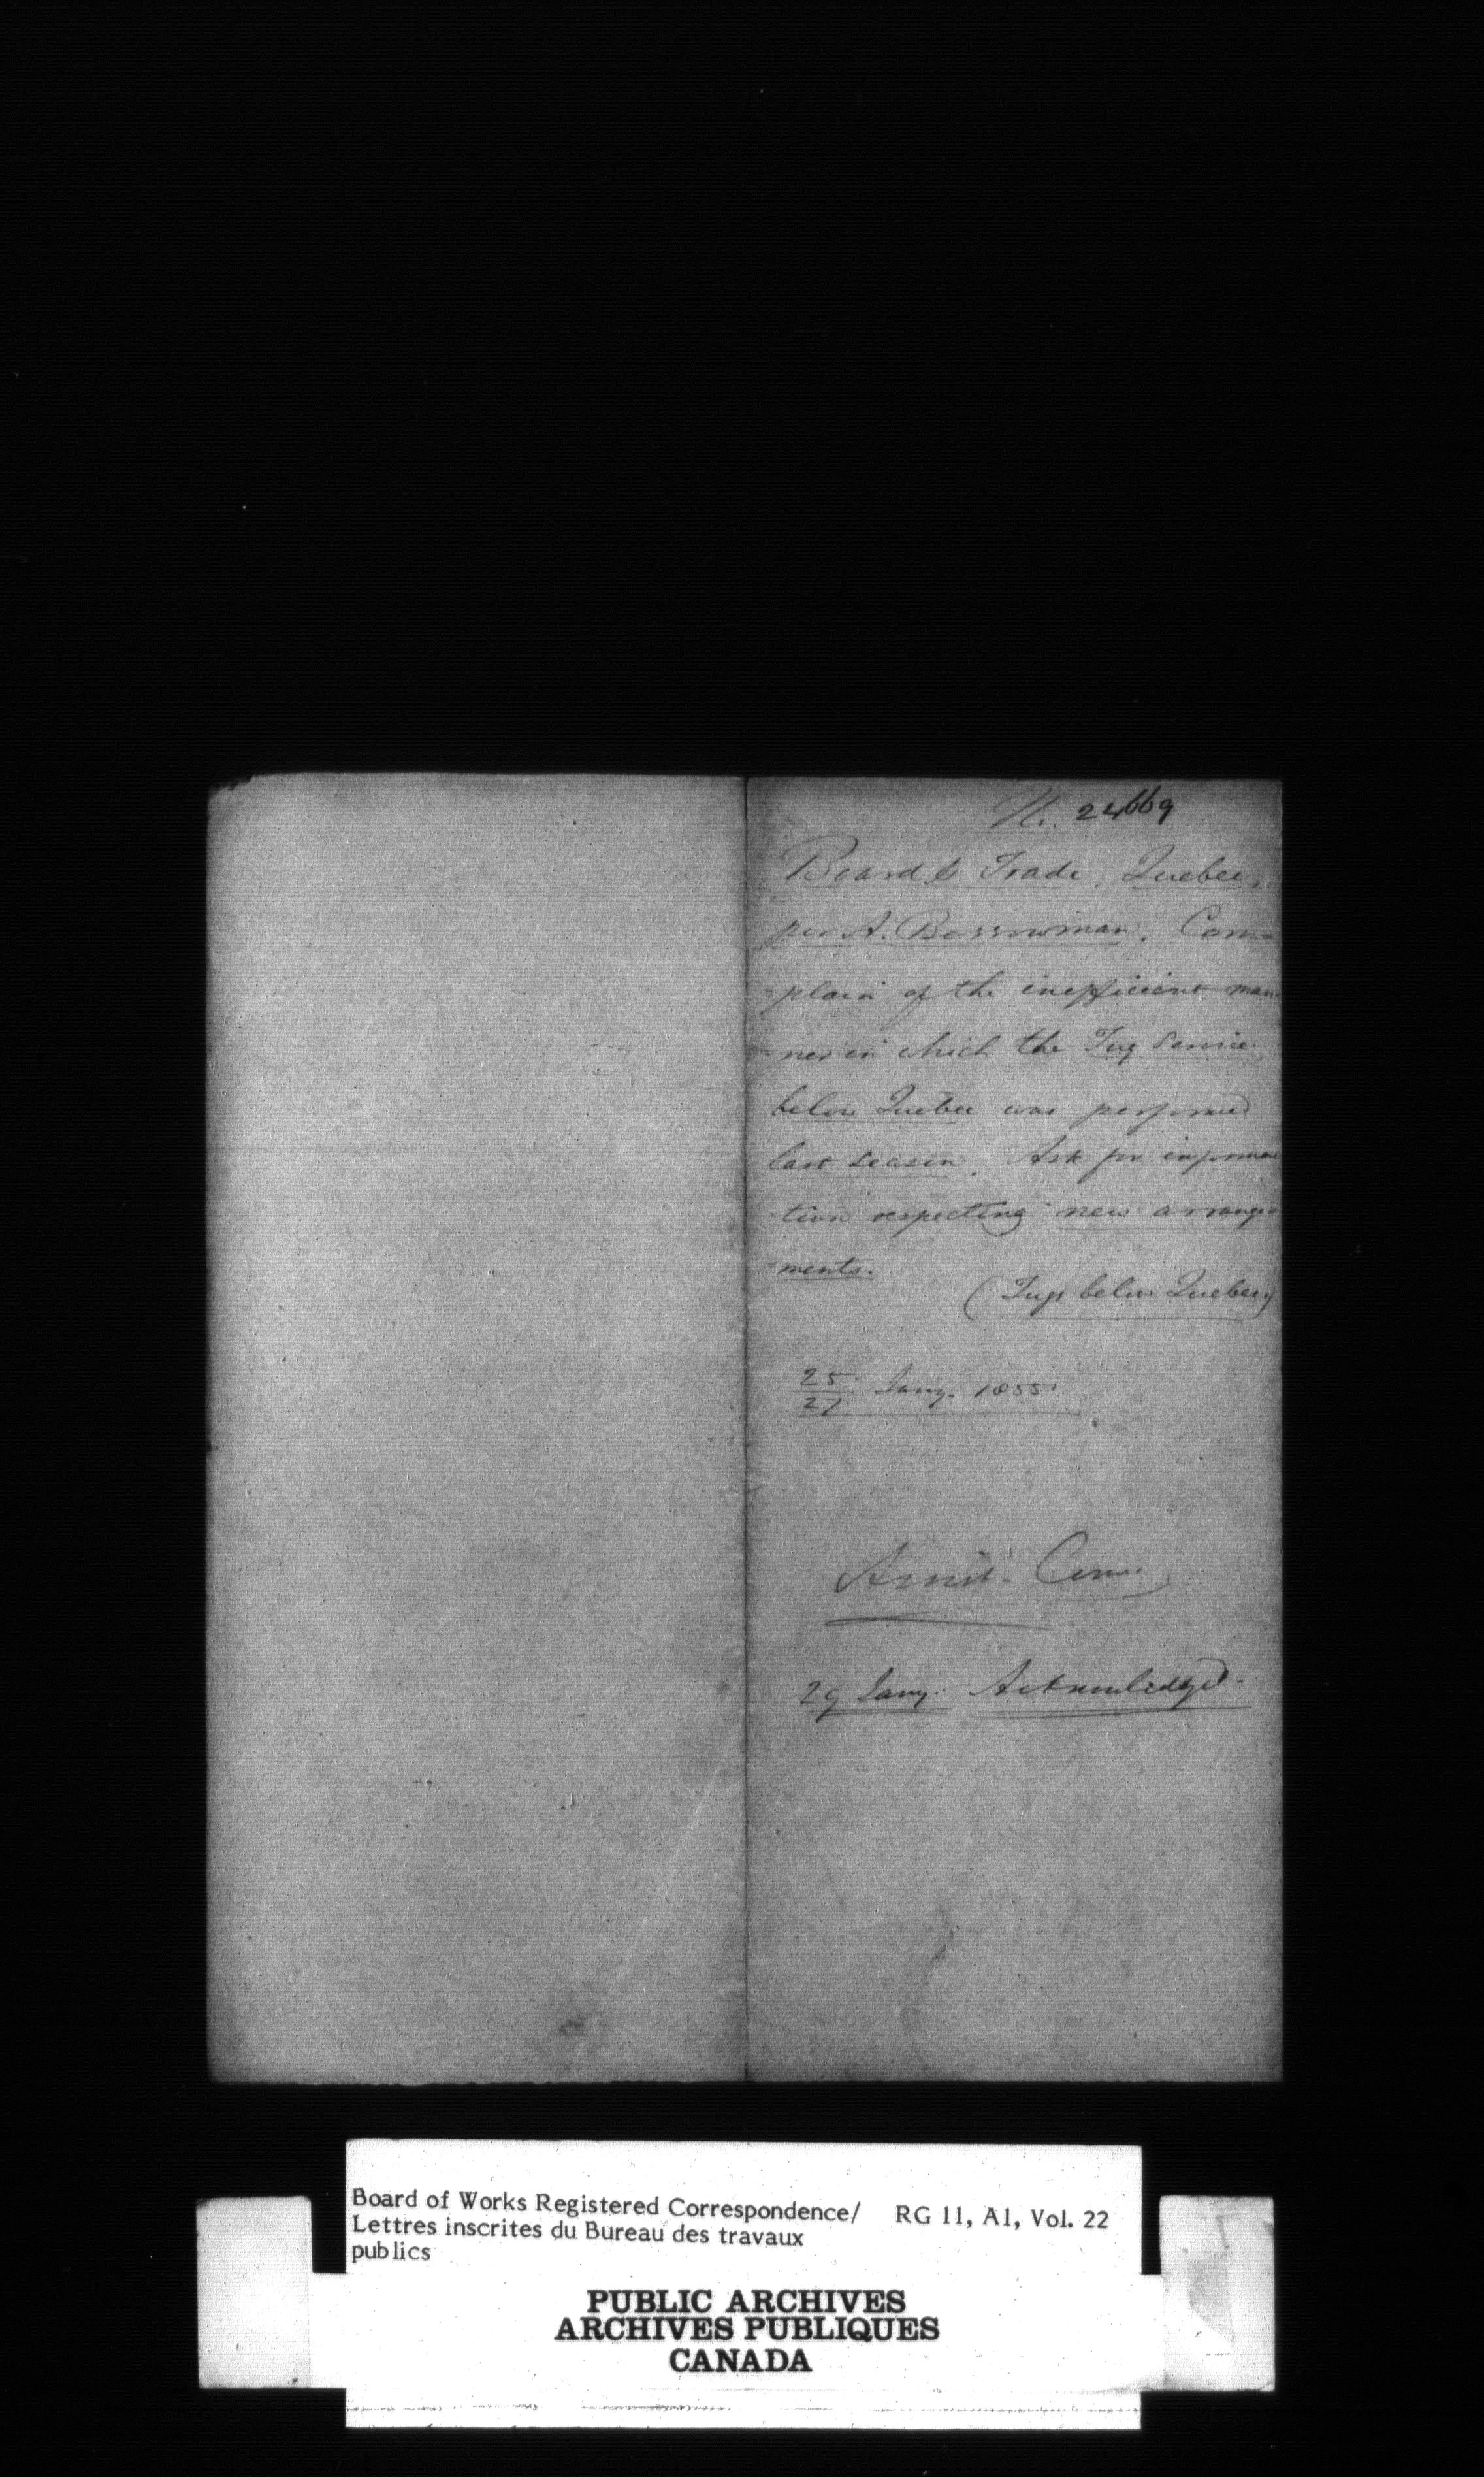 No. 24669
Board of Trade, Quebec,
per A. Borrowman. Com-
-plain of the inefficient man-
-ner in which the Tug Service
below Quebec was performed
last season. Ask for informa-
-tion respecting new arrange-
-ments.
(Tugs below Quebec)
25/27 Jany. 1855
29 Jany. Acknowledged.
Board of Works Registered Correspondence/ RG 11, A1, Vol. 22
Lettres inscrites du Bureau des travaux
publics
PUBLIC ARCHIVES
ARCHIVES PUBLIQUES
CANADA